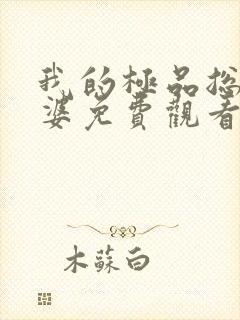 我的極品總
婆免費觀看
木蘇白